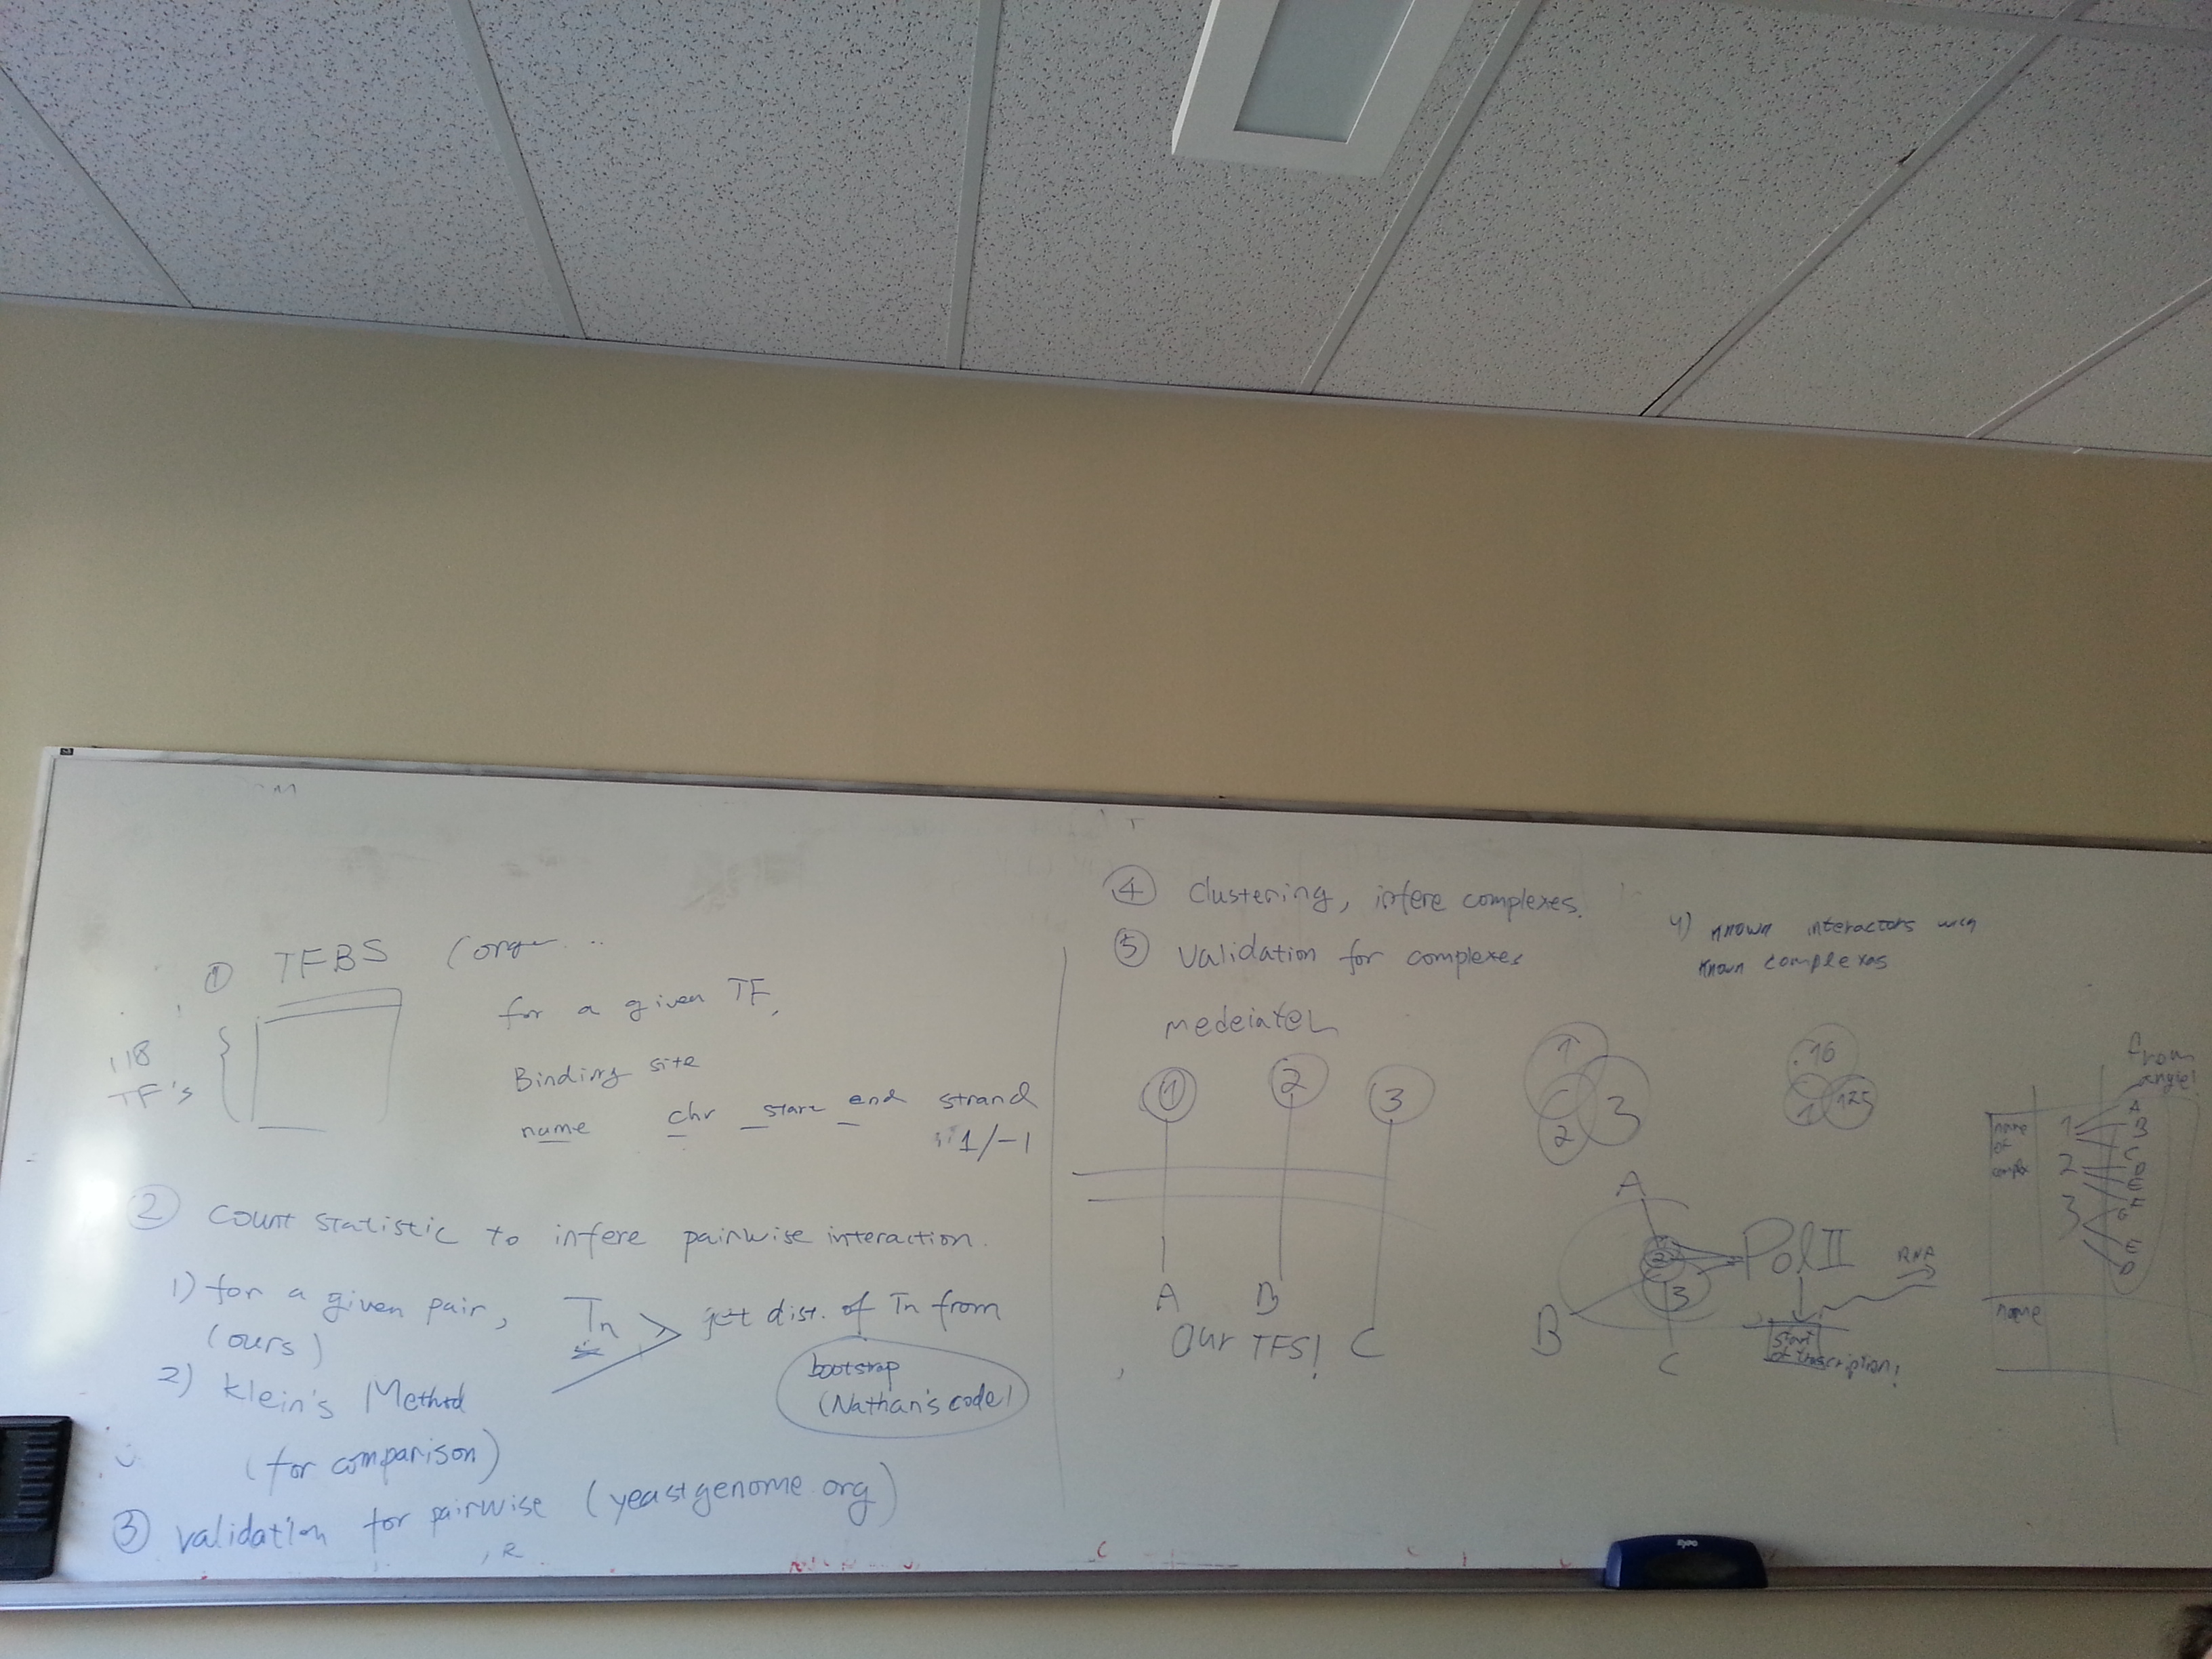 ① TFBS
118
TF's
for a given TF,
Binding site
name chr start end strand
1/-1
② count statistic to infere pairwise interaction.
1) for a given pair,
(ours)
Tn
get dist. of Tn from
bootstrap
(Nathan's code)
2) Klein's Method
(for comparison)
③ validation for pairwise (yeastgenome.org)
④ clustering, infere complexes.
⑤ validation for complexes
4) known interactors with
known complexes
1 2 3
A B C
our TFS!
1
3
2
16
1 125
A
2
3
B
C
Pol II
RNA
start
of transcription!
from
name
of
complex
1
2
3
A
B
C
D
E
F
G
E
D
name
EXPO